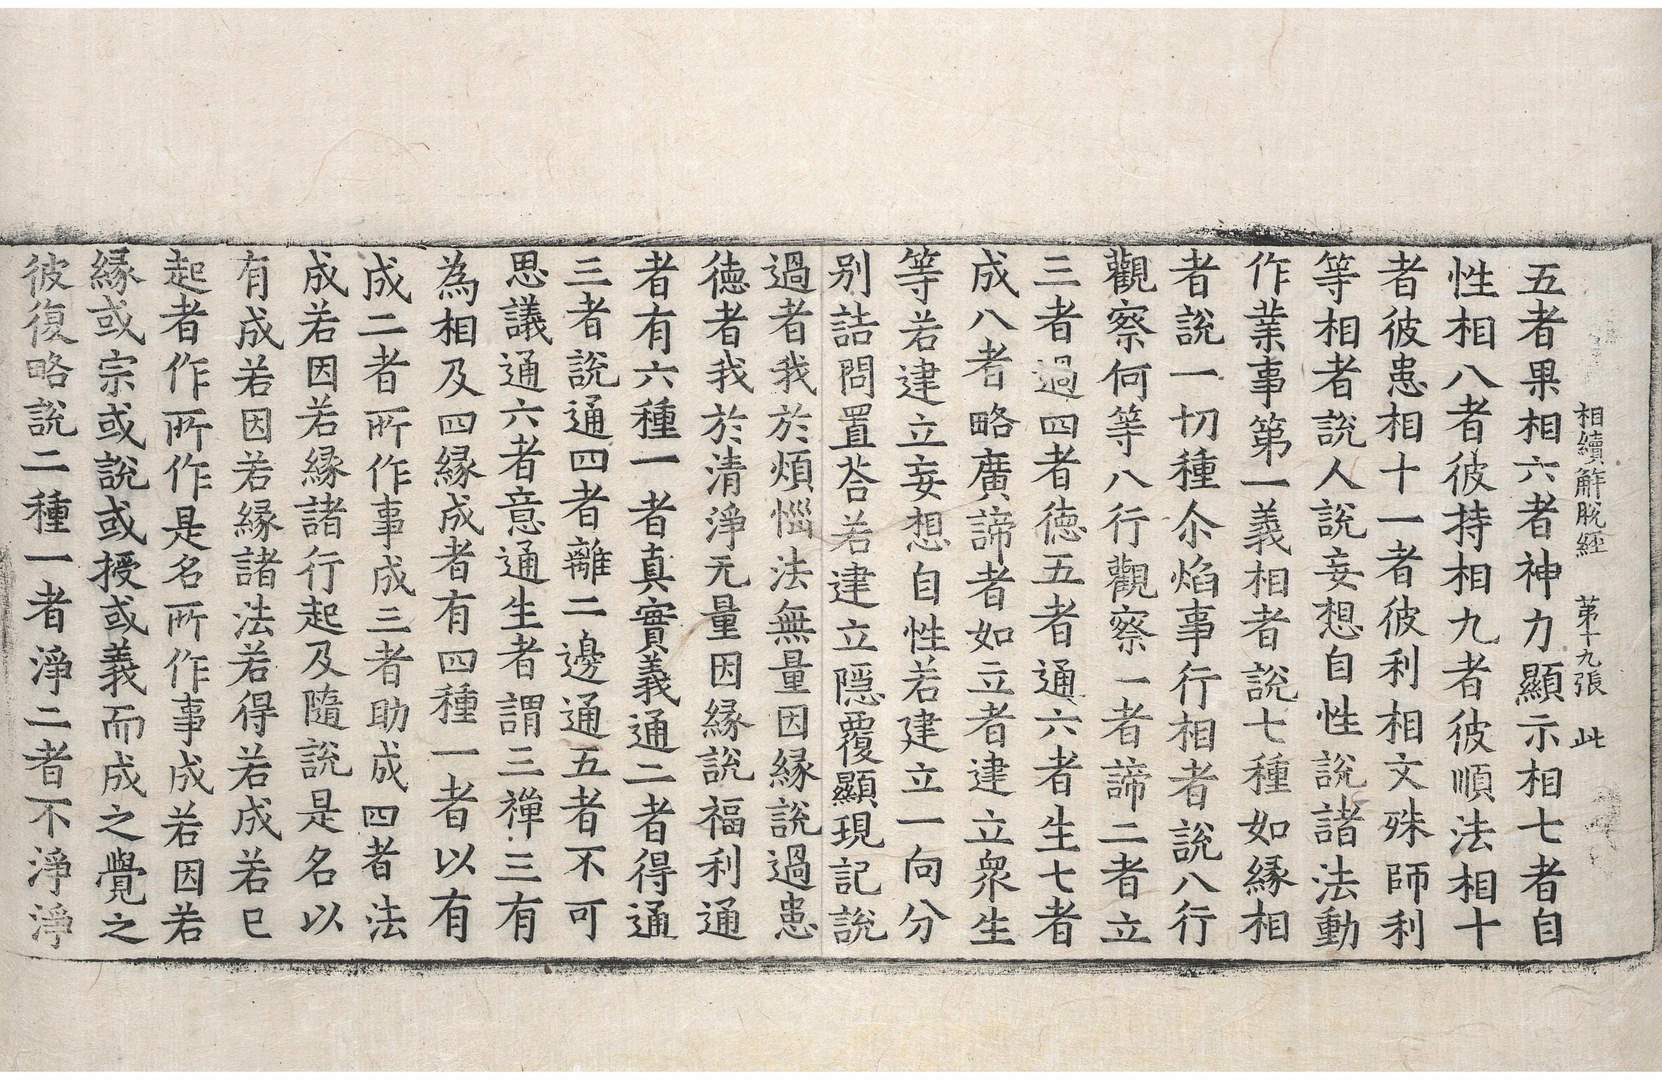 相續解脫經 第十九張 此
五者果相六者神力顯示相七者自
性相八者彼持相九者彼順法相十
者彼患相十一者彼利相文殊師利
等相者說人說妄想自性說諸法動
作業事第一義相者說七種如緣相
者說一切種尒焰事行相者說八行
觀察何等八行觀察一者諦二者立
三者過四者德五者通六者生七者
成八者略廣諦者如立者建立眾生
等若建立妄想自性若建立一向分
別詰問置荅若建立隱覆顯現記說
過者我於煩惱法無量因緣說過患
德者我於清淨无量因緣說福利通
者有六種一者真實義通二者得通
三者說通四者離二邊通五者不可
思議通六者意通生者謂三禪三有
為相及四緣成者有四種一者以有
成二者所作事成三者助成四者法
成若因若緣諸行起及隨說是名以
有成若因若緣諸法若得若成若已
起者作所作是名所作事成若因若
緣或宗或說或授或義而成之覺之
彼復略說二種一者淨二者不淨淨